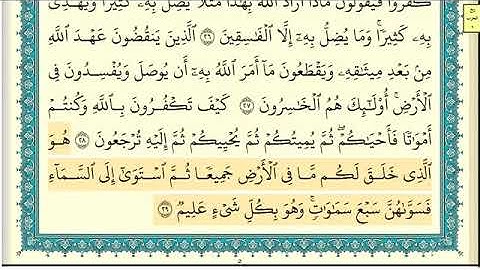 كَفَرُوا۟ فَيَقُولُونَ مَاذَآ أَرَادَ ٱللَّهُ بِهَٰذَا مَثَلًۭا يُضِلُّ بِهِۦ كَثِيرًۭا وَيَهْدِى
بِهِۦ كَثِيرًۭا ۚ وَمَا يُضِلُّ بِهِۦٓ إِلَّا ٱلْفَٰسِقِينَ ٢٦ ٱلَّذِينَ يَنقُضُونَ عَهْدَ ٱللَّهِ
مِنۢ بَعْدِ مِيثَٰقِهِۦ وَيَقْطَعُونَ مَآ أَمَرَ ٱللَّهُ بِهِۦٓ أَن يُوصَلَ وَيُفْسِدُونَ فِى
ٱلْأَرْضِ ۚ أُو۟لَٰٓئِكَ هُمُ ٱلْخَٰسِرُونَ ٢٧ كَيْفَ تَكْفُرُونَ بِٱللَّهِ وَكُنتُمْ
أَمْوَٰتًۭا فَأَحْيَٰكُمْ ۖ ثُمَّ يُمِيتُكُمْ ثُمَّ يُحْيِيكُمْ ثُمَّ إِلَيْهِ تُرْجَعُونَ ٢٨ هُوَ
ٱلَّذِى خَلَقَ لَكُم مَّا فِى ٱلْأَرْضِ جَمِيعًۭا ثُمَّ ٱسْتَوَىٰٓ إِلَى ٱلسَّمَآءِ
فَسَوَّىٰهُنَّ سَبْعَ سَمَٰوَٰتٍۢ ۚ وَهُوَ بِكُلِّ شَىْءٍ عَلِيمٌۭ ٢٩